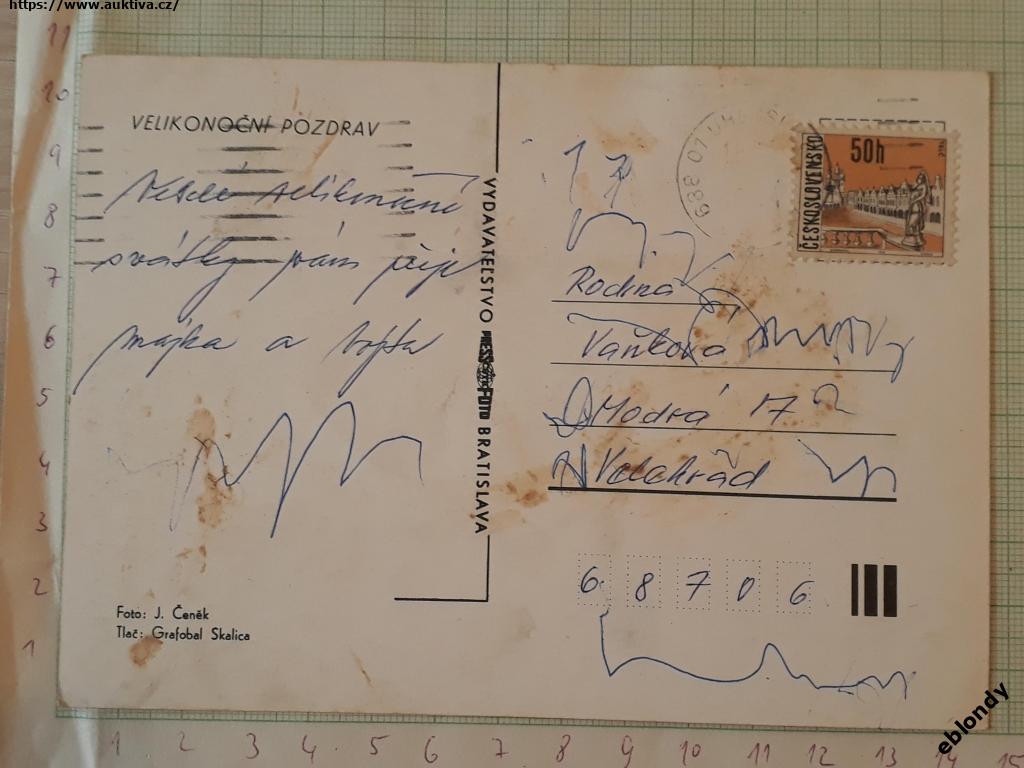 https://www.auktiva.cz/
VELIKONOČNÍ POZDRAV
Veselé velikonoční
svátky vám přeje
majka a vojta
Foto: J. Čeněk
Tlač: Grafobal Skalica
VYDAVATEĽSTVO PRESSFOTO BRATISLAVA
688 07 UH
ČESKOSLOVENSKO
50h
Rodina
Vaňková
Modrá 17
Velehrad
68706
11
10
9
8
7
6
5
4
3
2
1
1 2 3 4 5 6 7 8 9 10 11 12 13 14 15
eblondy